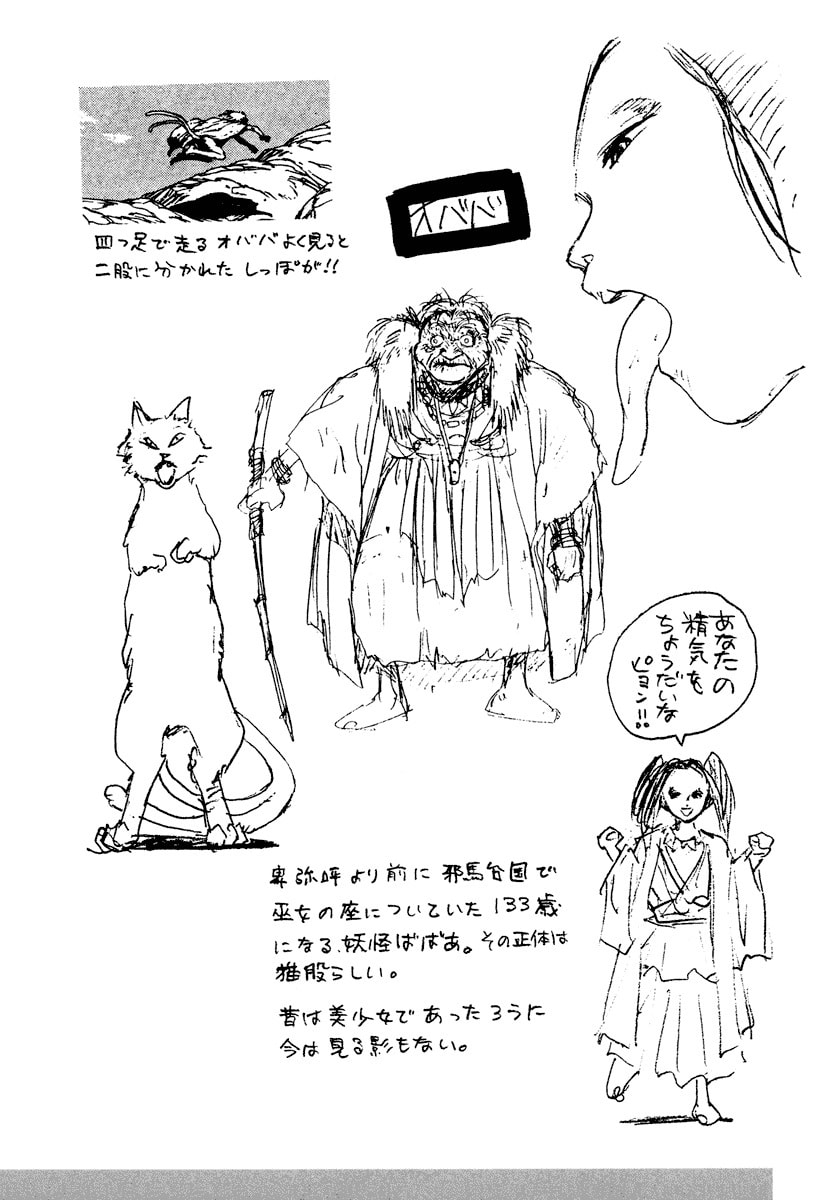 オババ
四つ足で走るオババよく見ると
二股に分かれたしっぽが!!
あなたの
精気を
ちょうだいな
ピョン!!
卑弥呼より前に邪馬台国で
巫女の座についていた133歳
になる、妖怪ばばあ。その正体は
猫股らしい。
昔は美少女であったろうに
今は見る影もない。